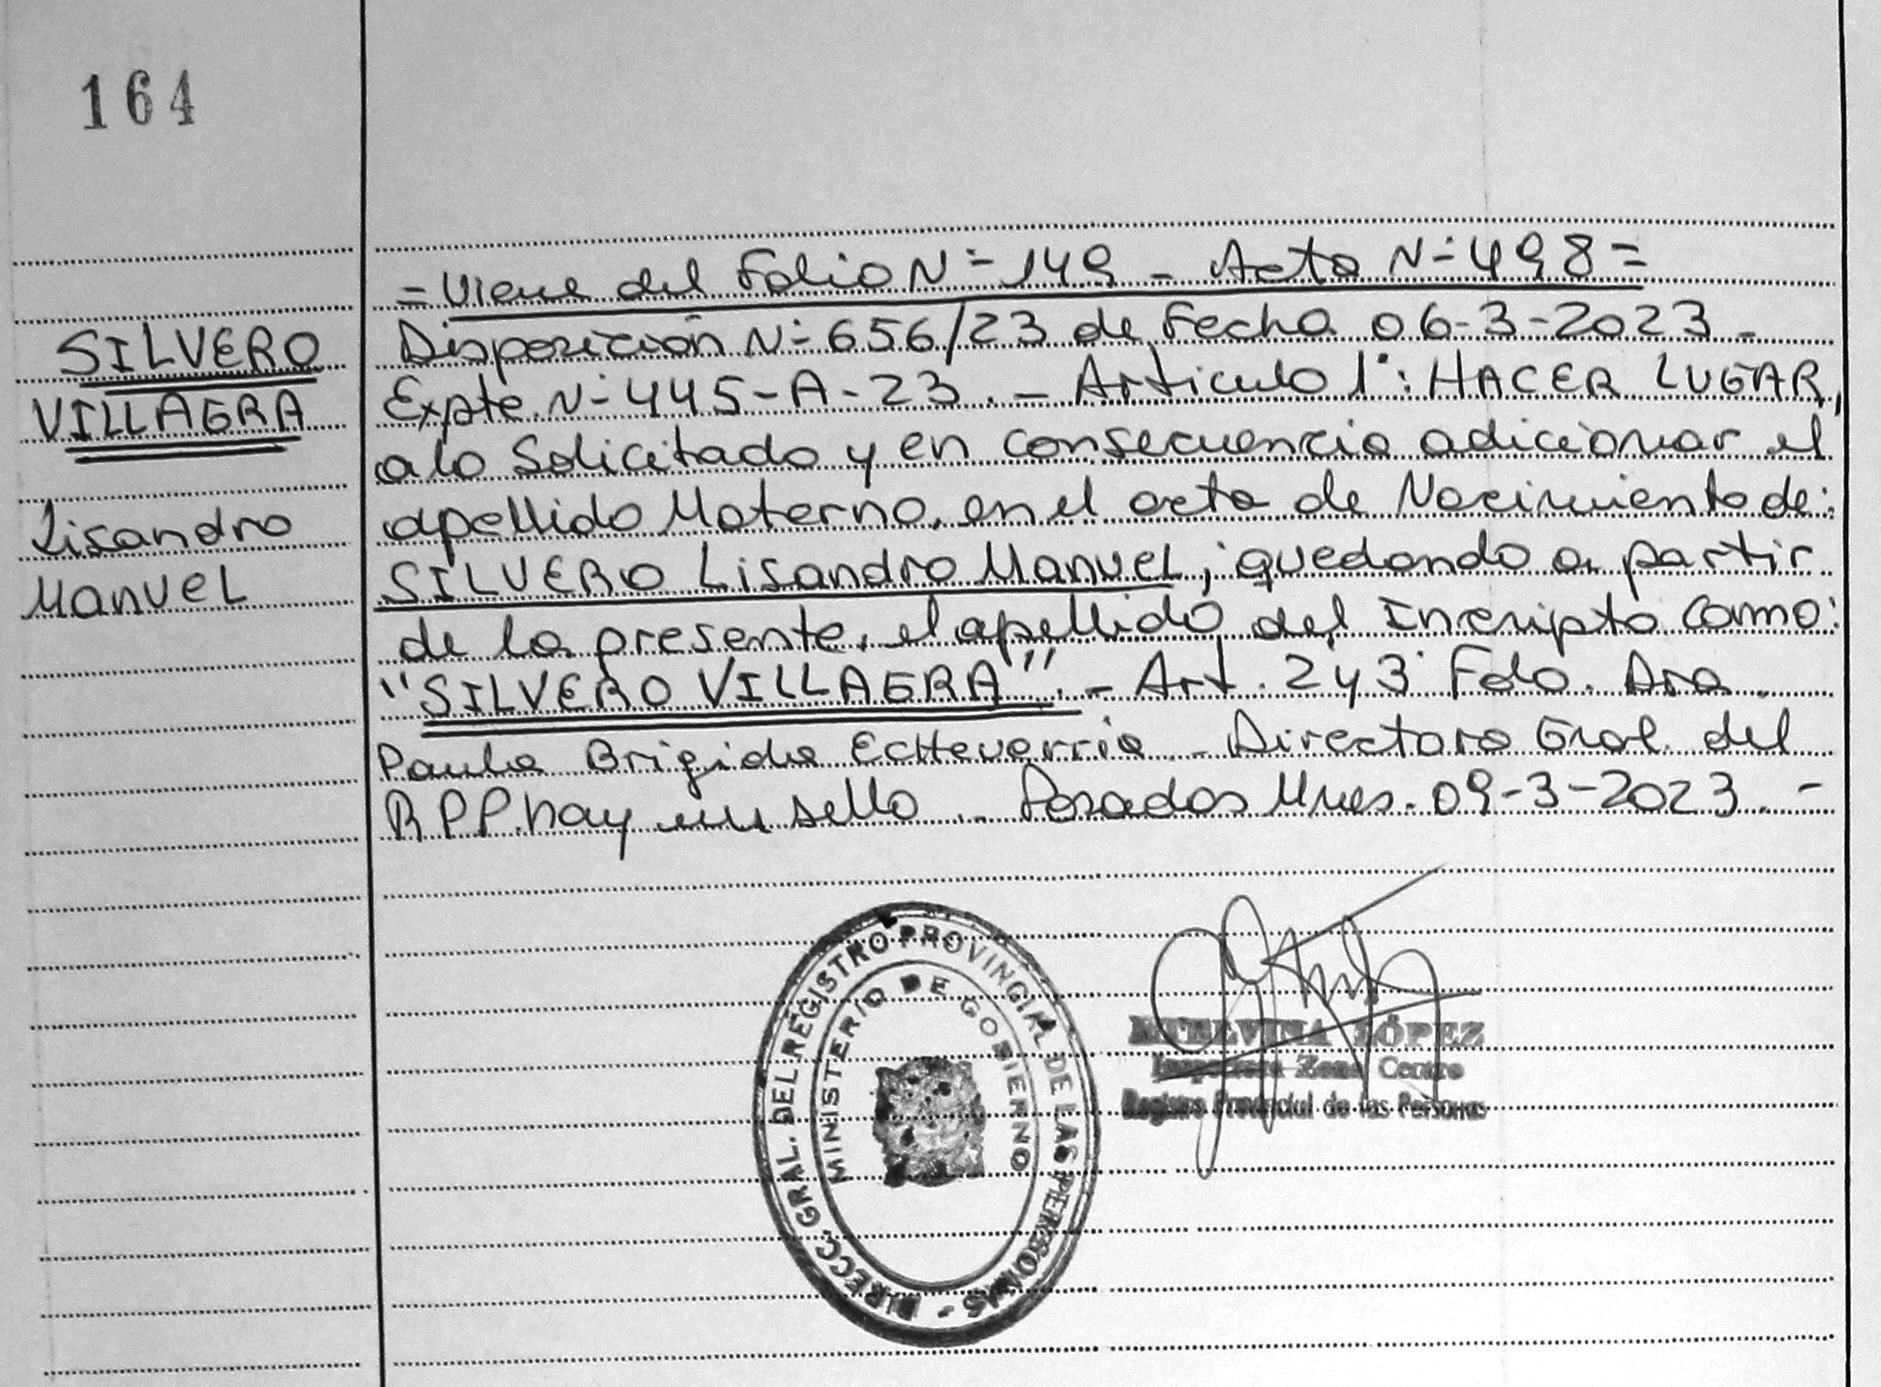 164
SILVERO
VILLAGRA
Lisandro
Manuel
= Viene del Folio N= 149 - Acta N= 498 =
Disposición N= 656/23 de Fecha 06-3-2023 -
Expte. N= 445-A-23. - Articulo 1°: HACER LUGAR,
a lo Solicitado y en consecuencia adicionar el
apellido Materno, en el acta de Nacimiento de:
SILVERO Lisandro Manuel; quedando a partir
de la presente, el apellido del Incripto Como:
"SILVERO VILLAGRA". - Art. 2 y 3 Fdo. Dra.
Paula Brigida Echeverria - Directora Gral. del
RPP. hay un sello .. Posadas Mnes. 09-3-2023. -
DIRECC. GRAL. DEL REGISTRO PROVINCIAL DE LAS PERSONAS -
MINISTERIO DE GOBIERNO
LÓPEZ
Inspectora Zona Centro
Registro Provincial de las Personas